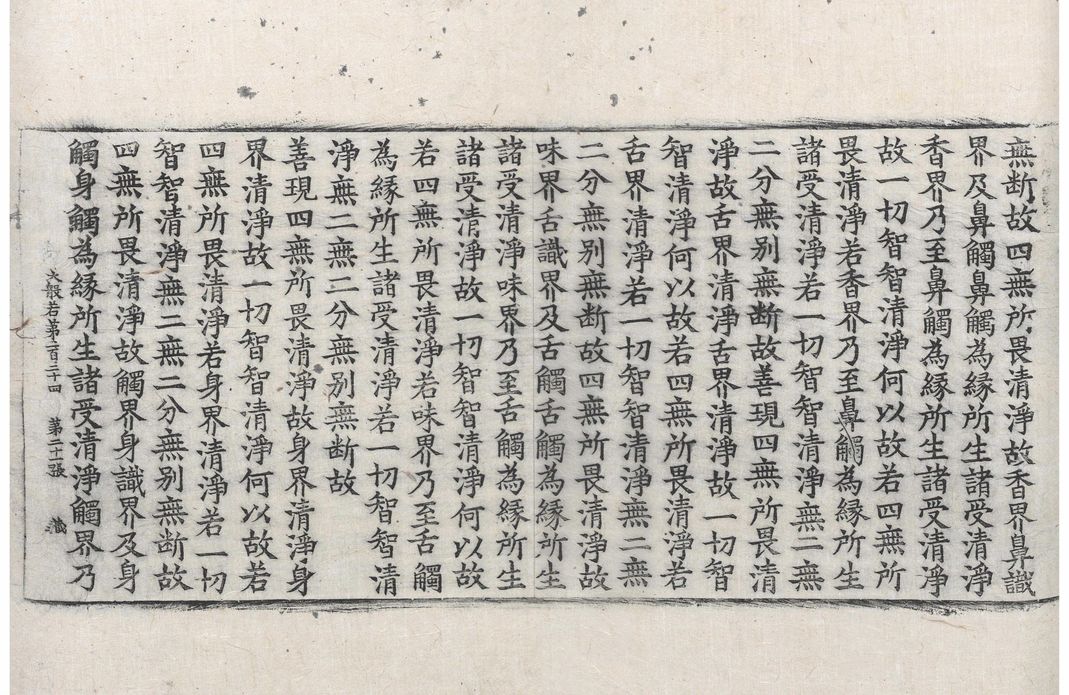 無断故四無所畏清淨故香界鼻識
界及鼻觸鼻觸為緣所生諸受清淨
香界乃至鼻觸為緣所生諸受清淨
故一切智智清淨何以故若四無所
畏清淨若香界乃至鼻觸為緣所生
諸受清淨若一切智智清淨無二無
二分無別無断故善現四無所畏清
淨故舌界清淨舌界清淨故一切智
智清淨何以故若四無所畏清淨若
舌界清淨若一切智智清淨無二無
二分無別無断故四無所畏清淨故
味界舌識界及舌觸舌觸為緣所生
諸受清淨味界乃至舌觸為緣所生
諸受清淨故一切智智清淨何以故
若四無所畏清淨若味界乃至舌觸
為緣所生諸受清淨若一切智智清
淨無二無二分無別無断故
善現四無所畏清淨故身界清淨身
界清淨故一切智智清淨何以故若
四無所畏清淨若身界清淨若一切
智智清淨無二無二分無別無断故
四無所畏清淨故觸界身識界及身
觸身觸為緣所生諸受清淨觸界乃
大般若第二百三十四 第二十一張 藏